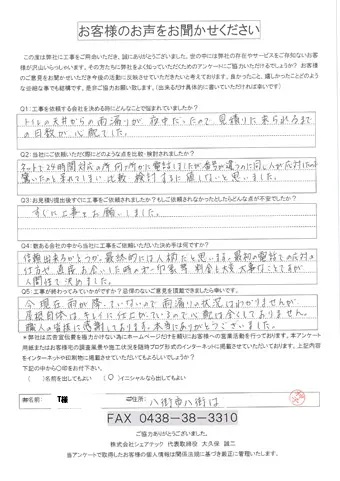 お客様のお声をお聞かせください
この度は弊社に工事をご用命いただき、誠にありがとうございます。世の中には弊社の存在やサービスをご存知ないお客
様が沢山いらっしゃいます。その方たちに弊社をよく知っていただくためのアンケートにご協力いただけるでしょうか？お客様
のご意見をお聞かせいただき今後の活動に反映させていただきたいと考えております。良かったこと、嬉しかったことどのよう
な些細な事でも結構です。是非ご協力お願い致します。（出来るだけ具体的に書いていただければ幸いです）
Q1:工事を依頼する会社を決める時にどんなことで悩まれていましたか？
トイレの天井からの雨漏りが夜中だったので見積りに来られるまで
の日数が心配でした。
Q2:当社にご依頼いただく際にどのような点を比較・検討されましたか？
ネットで24時間対応の所何ヶ所かに電話しましたが番号が違うのに同じ人が応対
驚いたのと 比較・検討するに値しないと思いました。
Q3:お見積り提出後すぐに工事をご依頼されましたか？もしご依頼されなかったとしたらどんな点が不安でしたか？
すぐに工事をお願いしました。
Q4:数ある会社の中から当社に工事をご依頼いただいた決め手は何ですか？
信頼出来るかどうか。最終的には人柄だと思います。最初の電話での応対の
仕方や直接お会いした時の 印象等 料金も大事なことですが
人間性で決めました。
Q5:工事が終わってみていかがですか？忌憚のないご意見を頂戴できましたら幸いです。
今現在雨が降っていないので雨漏りの状況は分りませんが、
屋根自体はキレイに仕上がっているので心配は全くしておりません。
職人の皆様に感謝しております。本当にありがとうございました。
*弊社は広告宣伝費を極力かけない為にホームページだけを頼りにお客様への営業活動を行っております。本アンケート
用紙またはお客様宅の調査風景や施工状況を随時ブログ形式のインターネットに掲載させていただいております。上記内容
をインターネットや印刷物に掲載させていただいてもよろしいでしょうか？
下記の中から○印をお付け下さい。
（　）名前を出してもよい　（○）イニシャルなら出してもよい
御名前: T様 ご住所: 八街市八街は
FAX 0438-38-3310
ご協力ありがとうございました。
株式会社シェアテック 代表取締役 大久保 誠二
当アンケートで取得したお客様の個人情報は関係法規に基づき厳正に管理いたします。